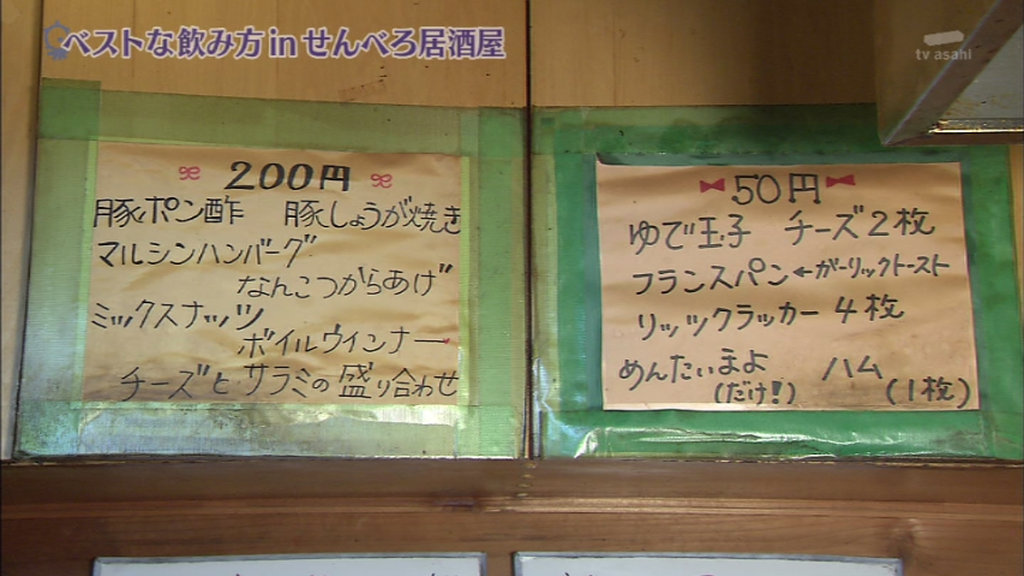 ベストな飲み方 in せんべろ居酒屋
tv asahi
200円
豚ポン酢 豚しょうが焼き
マルシンハンバーグ
なんこつからあげ
ミックスナッツ
ボイルウインナー
チーズとサラミの盛り合わせ
50円
ゆで玉子 チーズ2枚
フランスパン←ガーリックトースト
リッツクラッカー 4枚
めんたいまよ ハム
(だけ!) (1枚)